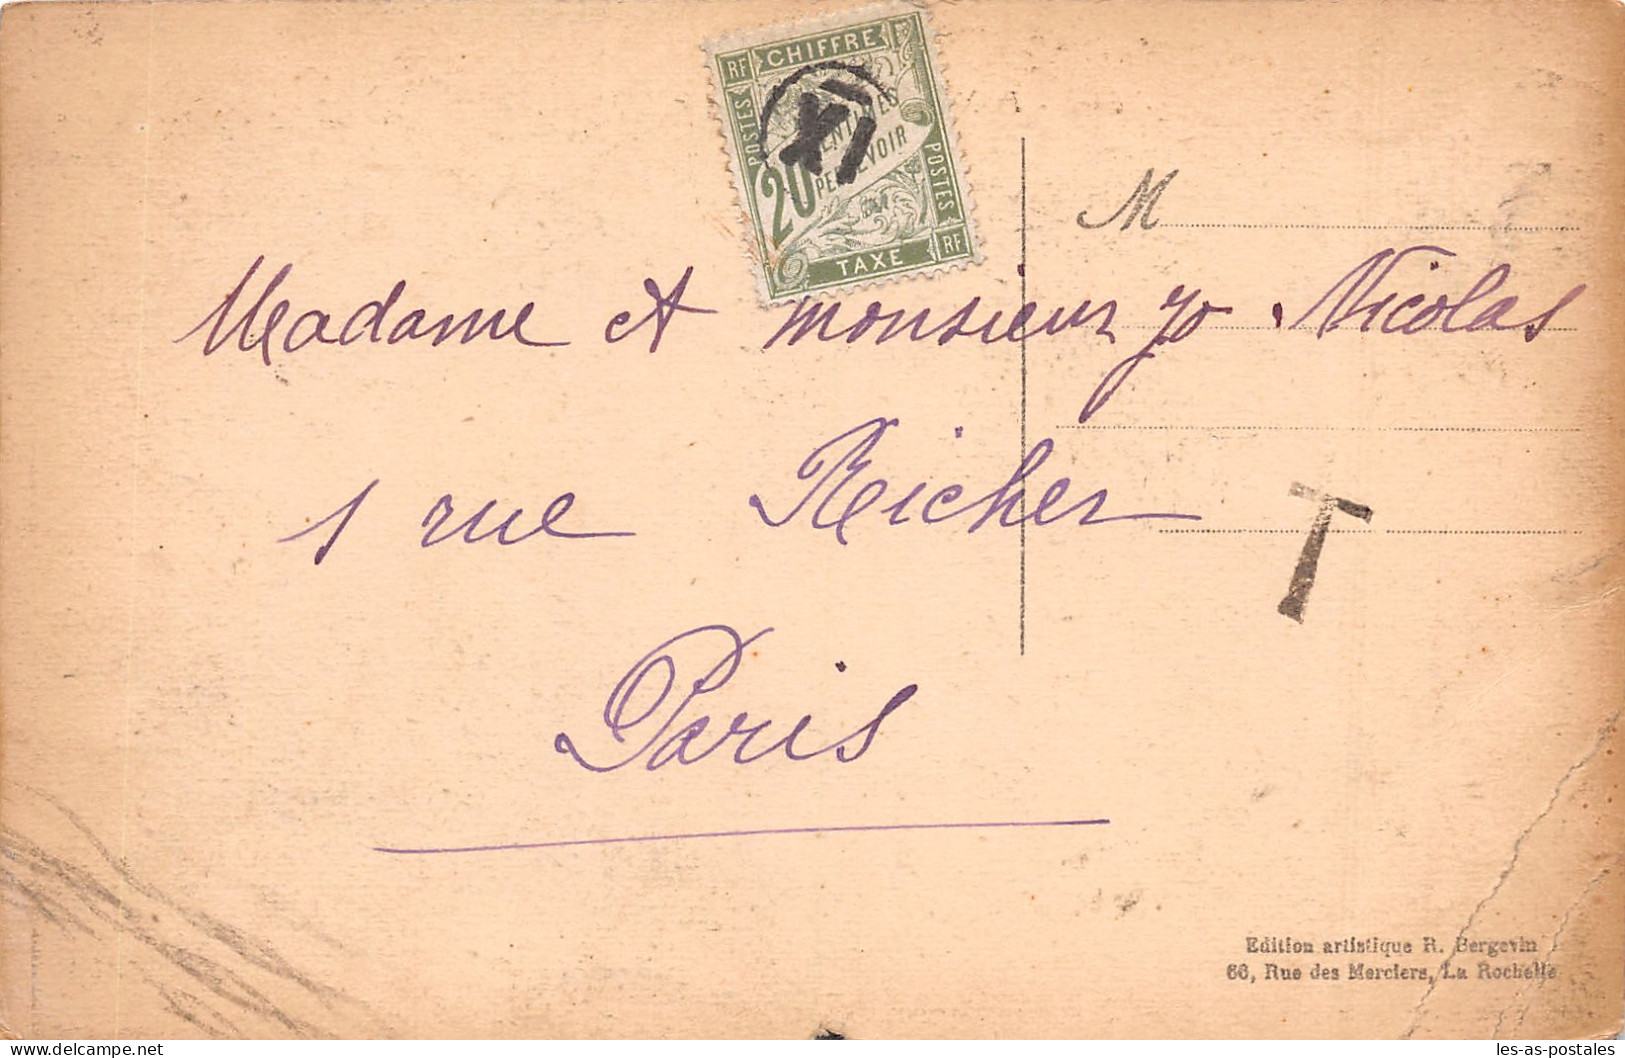 RF CHIFFRE
POSTES
CENTIMES
20 PERCEVOIR
POSTES
TAXE RF
XI
M
Madame et monsieur Jo Nicolas
1 rue Richer
T
Paris
Edition artistique R. Bergevin
66, Rue des Merciers, La Rochelle
les-as-postales